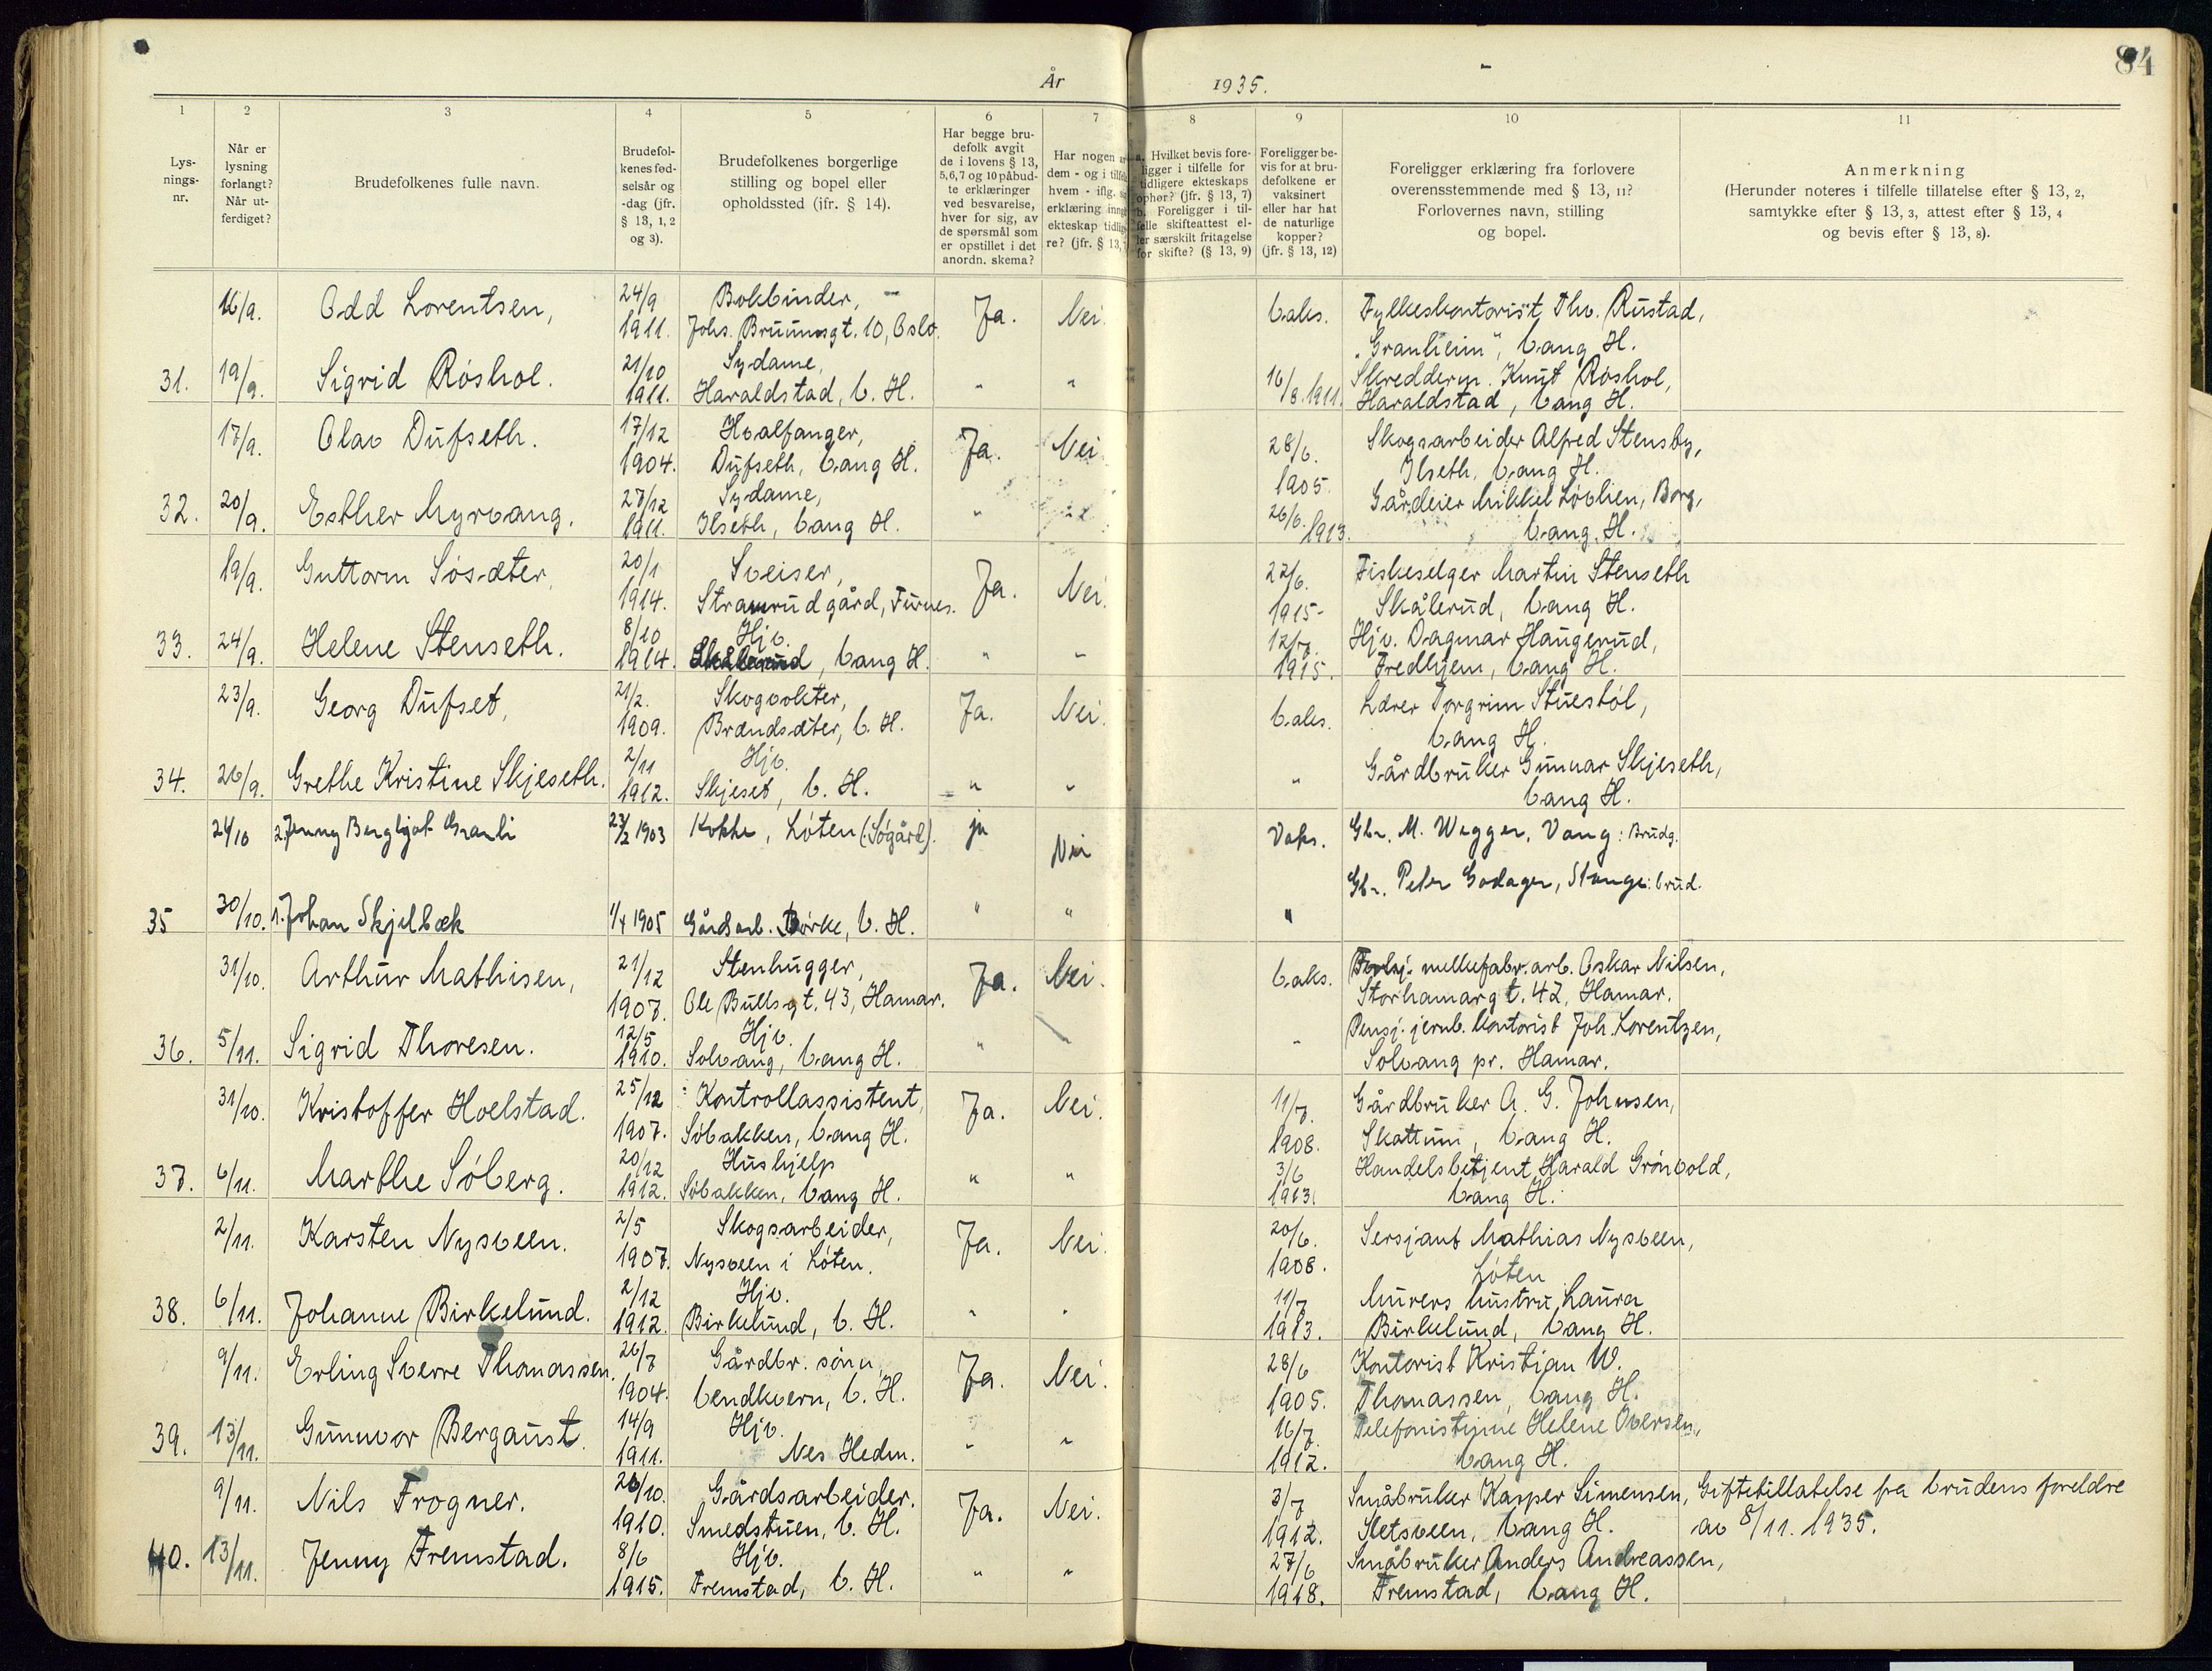 År 1935.
84
1 2 3 4 5 6 7 8 9 10 11
Lys-
nings-
nr.
Når er
lysning
forlangt?
Når ut-
ferdiget?
Brudefolkenes fulle navn.
Brudefol-
kenes fød-
selsår og
-dag (jfr.
§ 13, 1, 2
og 3).
Brudefolkenes borgerlige
stilling og bopel eller
opholdssted (jfr. § 14).
Har begge bru-
defolk avgit
de i lovens § 13,
5,6,7 og 10 påbud-
te erklæringer
ved besvarelse,
hver for sig, av
de spørsmål som
er opstillet i det
anordn. skema?
Har nogen
dem - og i
hvem - iflg.
erklæring
ekteskap
re? (jfr. § 13,
a. Hvilket bevis fore-
ligger i tilfelle for
tidligere ekteskaps
ophør? (jfr. § 13, 7)
b. Foreligger i til-
felle skifteattest el-
ler særskilt fritagelse
for skifte? (§ 13, 9)
Foreligger be-
vis for at bru-
defolkene er
vaksinert
eller har hat
de naturlige
kopper?
(jfr. § 13, 12)
Foreligger erklæring fra forlovere
overensstemmende med § 13, 11?
Forlovernes navn, stilling
og bopel.
Anmerkning
(Herunder noteres i tilfelle tillatelse efter § 13, 2,
samtykke efter § 13, 3, attest efter § 13, 4
og bevis efter § 13, 8).
16/9. Odd Lorentsen, 24/9 1911. Bokbinder, Johs. Bruunsgt. 10, Oslo. Ja. Nei. Vaks. Fylkeskontorist Thv. Rustad,
"Granheim", Vang H.
31. 19/9. Sigrid Røshol. 21/10 1911. Sydame, Haraldstad, V. H. " " 16/8.1911. Skredderm. Knut Røshol,
Haraldstad, Vang H.
17/9. Olav Dufseth. 17/12 1904. Hvalfanger, Dufseth, Vang H. Ja. Nei 28/6. 1905. Skogsarbeider Alfred Stensby,
Ilseth, Vang H.
32. 20/9. Esther Myrvang. 27/12 1911. Sydame, Ilseth, Vang H. " " 26/6. 1913. Gårdeier Mikkel Løvlien, Borg,
Vang H.
19/9. Guttorm Søsæter, 20/1 1914. Sveiser, Stramrud gård, Furnes. Ja. Nei. 22/6. 1915- Fiskeselger Martin Stenseth
Skålerud, Vang H.
33. 24/9. Helene Stenseth. 8/10 1914. Hjv. Skålerud, Vang H. " " 12/7. 1915. Hjv. Dagmar Haugerud,
Fredhjem, Vang H.
23/9. Georg Dufset, 21/2. 1909. Skogvokter, Brændsæter, V. H. Ja. Nei. Vaks. Lærer Torgrim Stuestøl,
Vang H.
34. 26/9. Grethe Kristine Skjeseth. 2/11 1912. Hjv. Skjeset, V. H. " " " Gårdbruker Gunnar Skjeseth,
Vang H.
24/10 2. Jenny Bergljot Granli 23/2 1903 Kokke, Løten (:Søgård). ja Nei Vaks. Gbr. M. Wegger, Vang: Brudg.
Gbr. Peter Godager, Stange: brud.
35 30/10. 1. Johan Skjelbæk 1/4 1905 Gårdsarb. Børke, V. H. " " "
31/10. Arthur Mathisen, 21/12 1907. Stenhugger, Ole Bullsgt. 43, Hamar. Ja. Nei. Vaks. melkefabr. arb. Oskar Nilsen,
Storhamargt. 42, Hamar.
36. 5/11. Sigrid Thoresen. 12/5 1910. Hjv. Solvang, Vang H. " " Pensj. jernb. kontorist Joh. Lorentzen,
Solvang pr. Hamar.
31/10. Kristoffer Hoelstad. 25/12 1907. Kontrollassistent, Søbakken, Vang H. Ja. Nei. 11/7. 1908. Gårdbruker A. G. Johnsen,
Skattum, Vang H.
37. 6/11. Marthe Søberg. 20/12 1912. Hushjelp Søbakken, Vang H. " " 3/6 1913. Handelsbetjent Harald Grønvold,
Vang H.
2/11. Karsten Nysveen. 2/5 1907. Skogsarbeider, Nysveen i Løten. Ja. Nei. 20/6. 1908. Sersjant Mathias Nysveen,
Løten
38. 6/11. Johanne Birkelund. 2/12 1912. Hjv. Birkelund, V. H. " " 11/7 1913. Murers hustru Laura
Birkelund, Vang H.
9/11. Erling Sverre Thomassen. 26/7 1904. Gårdbr. sønn, Vendkvern, V. H. Ja. Nei. 28/6 1905. Kontorist Kristian W.
Thomassen, Vang H.
39. 13/11. Gunnvor Bergaust. 14/9 1911. Hjv. Nes Hedm. " " 16/7 1912. Telefonistinne Helene Oversen,
Vang H.
9/11. Nils Frogner. 26/10. 1910. Gårdsarbeider. Smedstuen, V. H. Ja. Nei. 3/7 1912. Småbruker Kasper Simensen, Giftetillatelse fra brudens foreldre
Sletsveen, Vang H. av 8/11. 1935.
40. 13/11. Jenny Fremstad. 8/6 1915. Hjv. Fremstad, V. H. " " 27/6 1918. Småbruker Anders Andreassen,
Fremstad, Vang H.